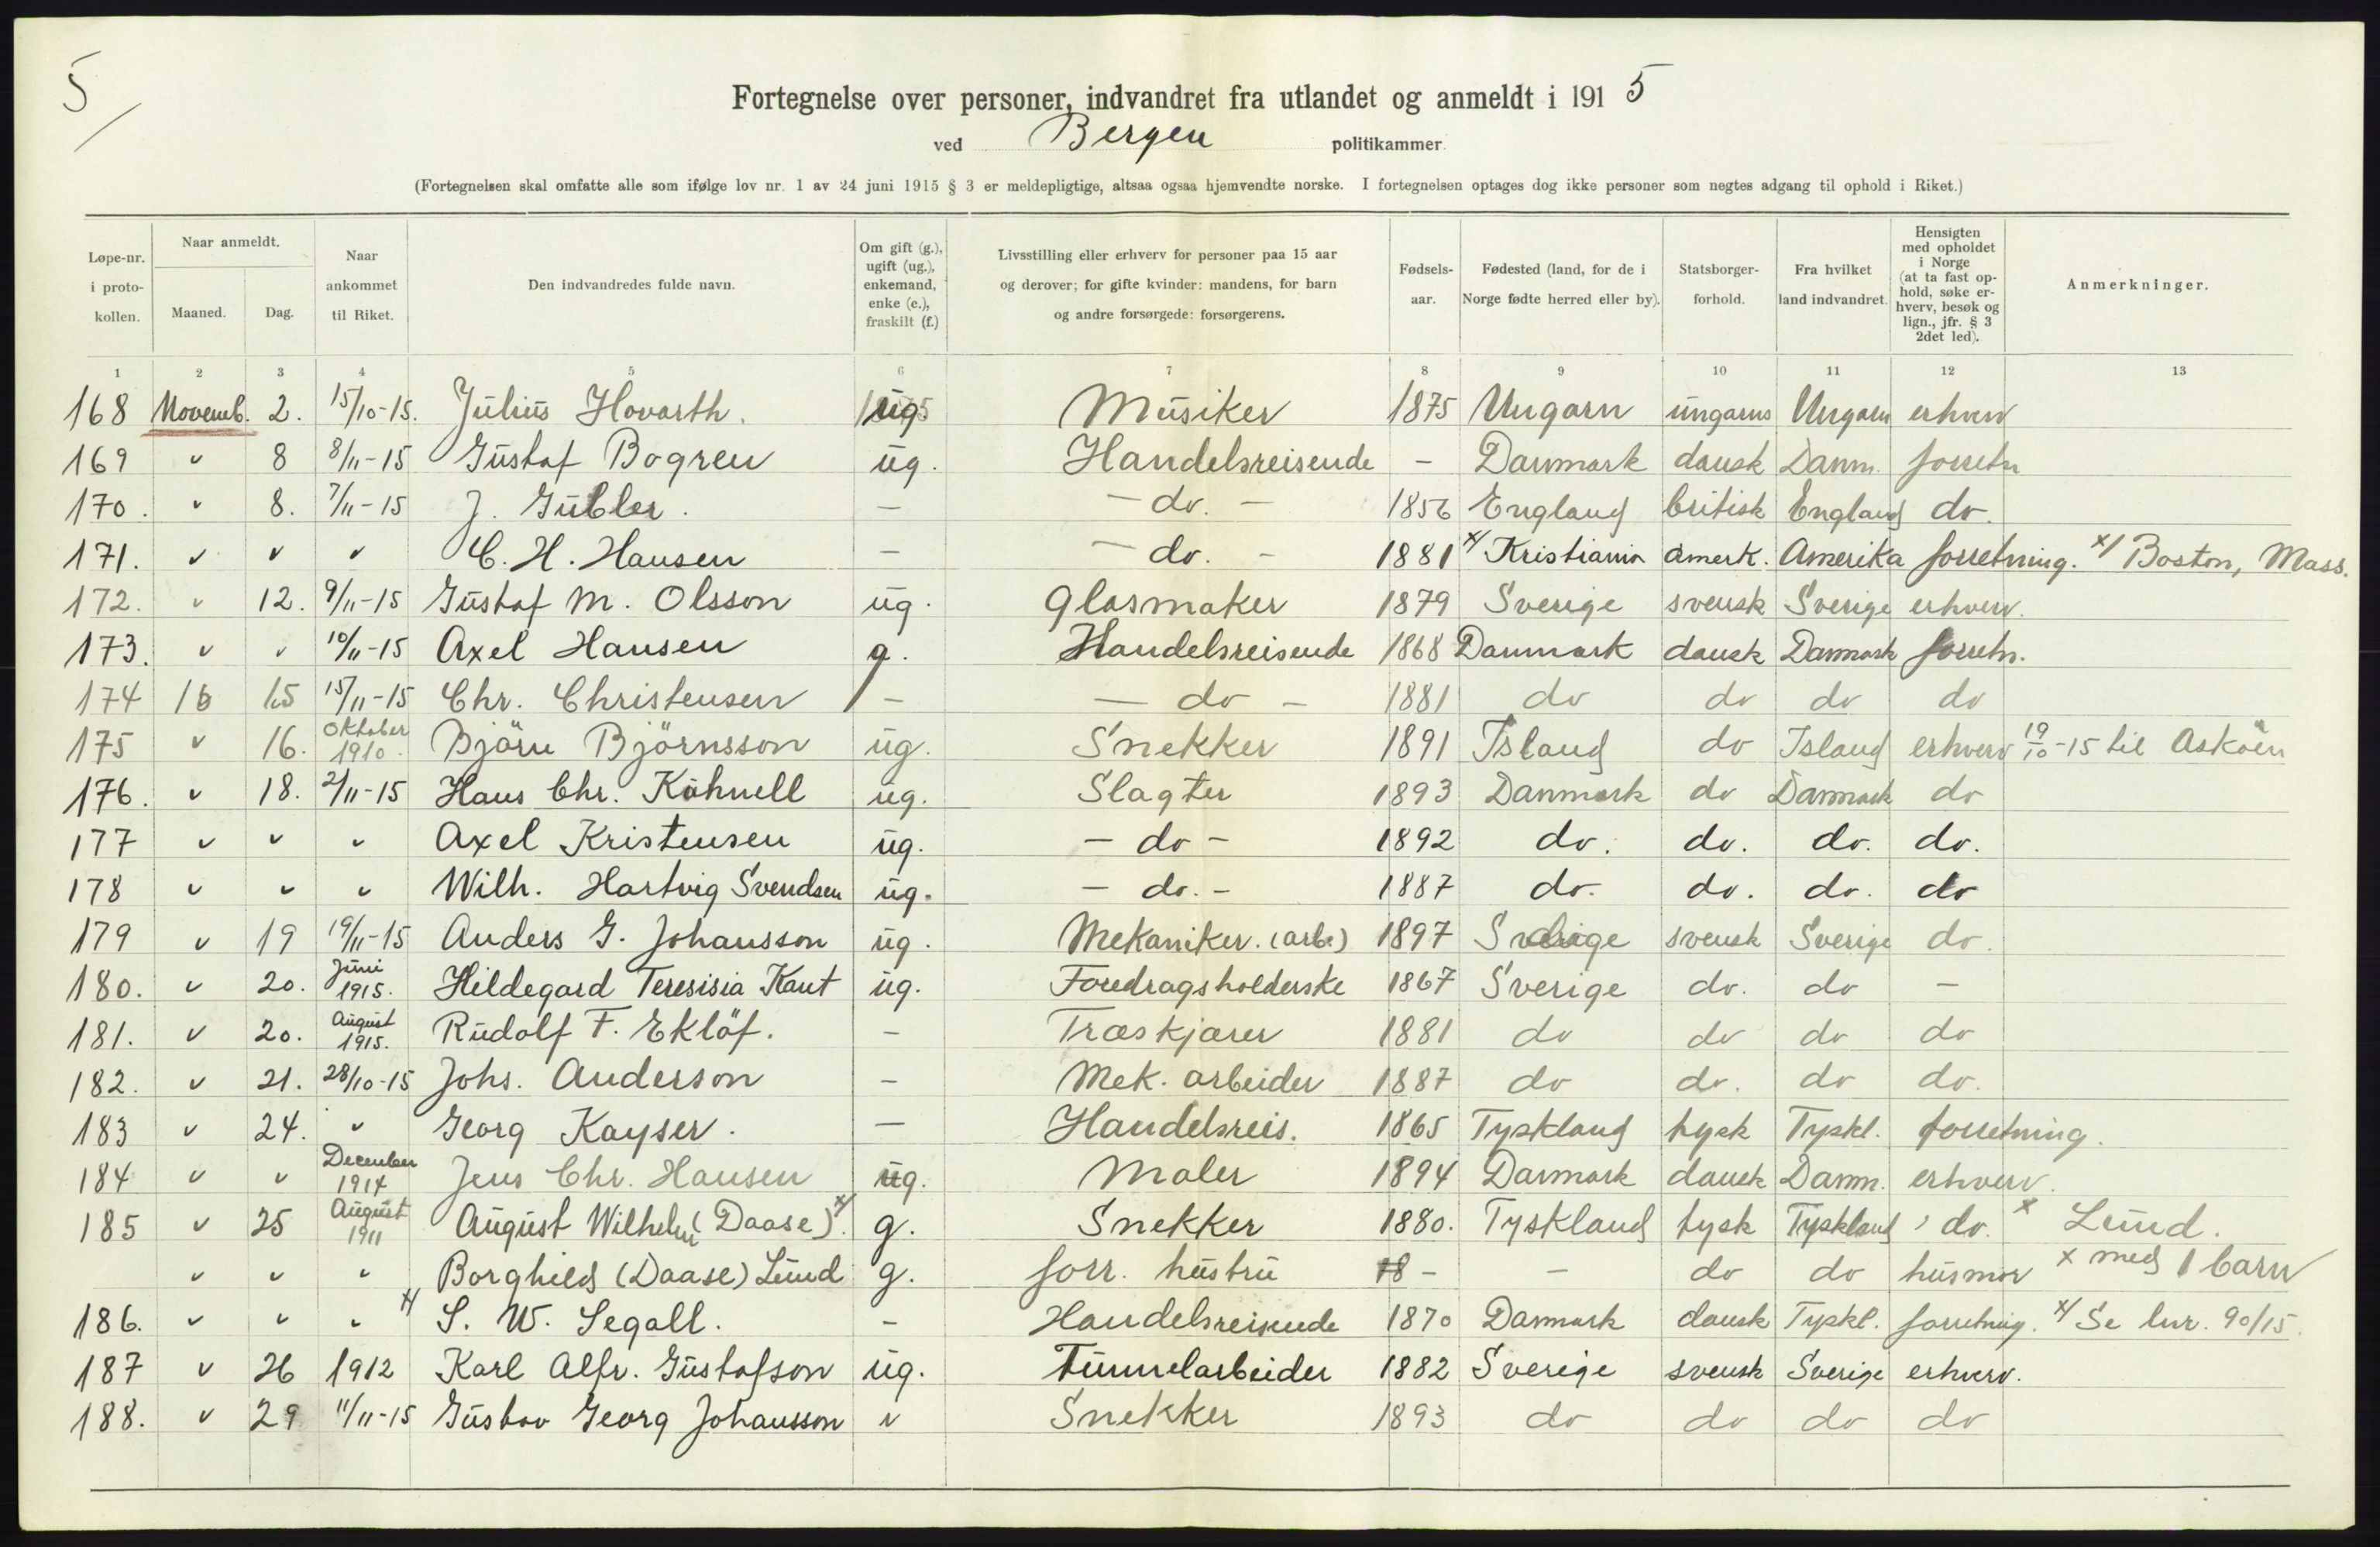 5
Fortegnelse over personer, indvandret fra utlandet og anmeldt i 1915
ved Bergen politikammer
(Fortegnelsen skal omfatte alle som ifølge lov nr. 1 av 24 juni 1915 § 3 er meldepligtige, altsaa ogsaa hjemvendte norske. I fortegnelsen optages dog ikke personer som negtes adgang til ophold i Riket.)
Løpe-nr. i proto-kollen. Naar anmeldt. Maaned. Dag. Naar ankommet til Riket. Den indvandredes fulde navn. Om gift (g.), ugift (ug.), enkemand, enke (e.), fraskilt (f.) Livsstilling eller erhverv for personer paa 15 aar og derover; for gifte kvinder: mandens, for barn og andre forsørgede: forsørgerens. Fødsels-aar. Fødested (land, for de i Norge fødte herred eller by). Statsborger-forhold. Fra hvilket land indvandret. Hensigten med opholdet i Norge (at ta fast op-hold, søke er-hverv, besøk og lign., jfr. § 3 2det led). Anmerkninger.
1 2 3 4 5 6 7 8 9 10 11 12 13
168 Novemb. 2. 15/10-15. Julius Hovarth. ug. Musiker 1875 Ungarn ungarns Ungarn erhverv
169 " 8 8/11-15 Gustaf Bogren ug. Handelsreisende - Danmark dansk Danm. forretn
170. " 8. 7/11-15 J. Gubler. — - do. - 1856 England britisk England do.
171. " " " C. H. Hansen — - do. - 1881 x/ Kristiania amerk. Amerika forretning. x/ Boston, Mass.
172. " 12. 9/11-15 Gustaf M. Olsson ug. Glasmaker 1879 Sverige svensk Sverige erhverv.
173. " " 10/11-15 Axel Hansen g. Handelsreisende 1868 Danmark dansk Danmark forretn.
174 " 15 15/11-15 Chr. Christensen - - do - 1881 do do do do
175 " 16. Oktober 1910. Björn Björnsson ug. Snekker 1891 Island do Island erhverv 19/10-15 til Askøen
176. " 18. 2/11-15 Hans Chr. Kühnell ug. Slagter 1893 Danmark do Danmark do
177 " " " Axel Kristensen ug. - do - 1892 do. do. do. do.
178 " " " Wilh. Hartvig Svendsen ug. - do. - 1887 do. do. do. do
179 " 19 19/11-15 Anders G. Johansson ug. Mekaniker. (arb.) 1897 Sverige svensk Sverige do.
180. " 20. Juni 1915. Hildegard Teresisia Kant ug. Foredragsholderske 1867 Sverige do. do -
181. " 20. August 1915. Rudolf F. Eklöf. - Træskjærer 1881 do do do do
182. " 21. 28/10-15 Johs. Anderson - Mek. arbeider 1887 do do. do do.
183 " 24. " Georg Kayser. — Handelsreis. 1865 Tyskland tysk Tyskl. forretning.
184 " " December 1914 Jens Chr. Hansen ug. Maler 1894 Danmark dansk Danm. erhverv.
185 " 25 August 1911 August Wilhelm (Daase) x/ g. Snekker 1880. Tyskland tysk Tyskland do. x Lund.
" " " Borghild (Daase) Lund g. forr. hustru 18 - - do do husmor x med 1 barn
186. " " " x/ S. W. Segall. - Handelsreisende 1870 Danmark dansk Tyskl. forretning. x/ Se lnr. 90/15.
187 " 26 1912 Karl Alfr. Gustafson ug. Tunnelarbeider 1882 Sverige svensk Sverige erhverv.
188. " 29 11/11-15 Gustav Georg Johansson " Snekker 1893 do do do do